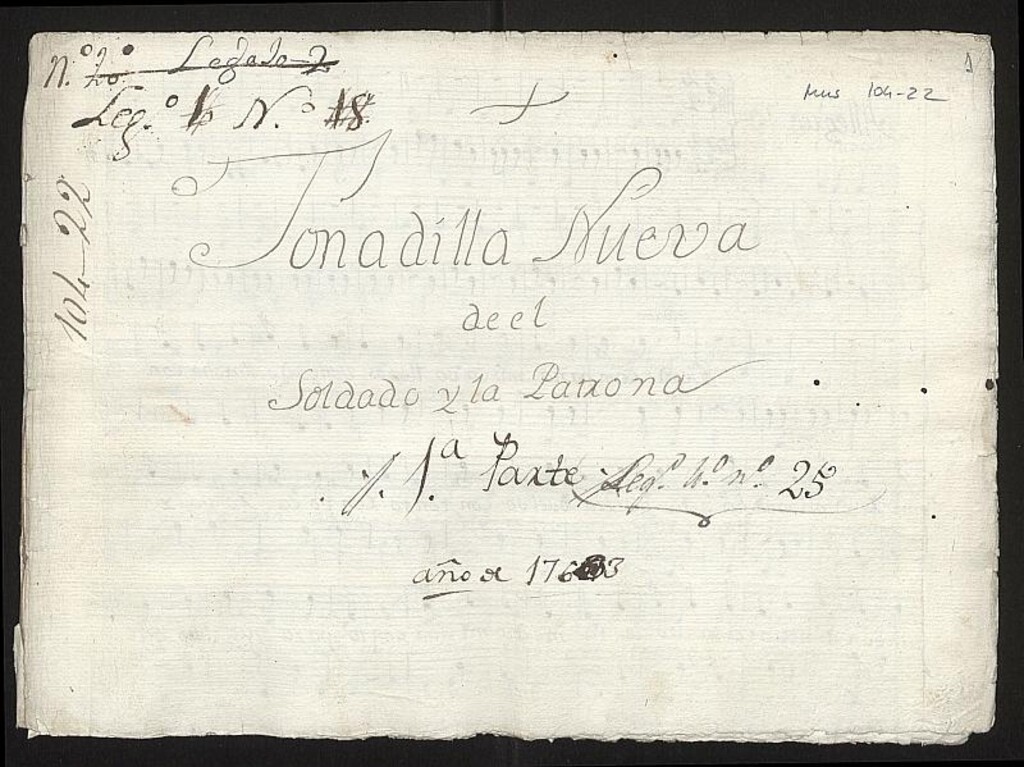 N.º 20 Legajo 2
1
Leg.º 1 N.º 18
Mus 104-22
104-22
Tonadilla Nueva
de el
Soldado y la Patrona
1.ª Parte Leg.º 4.º n.º 25
año de 1763